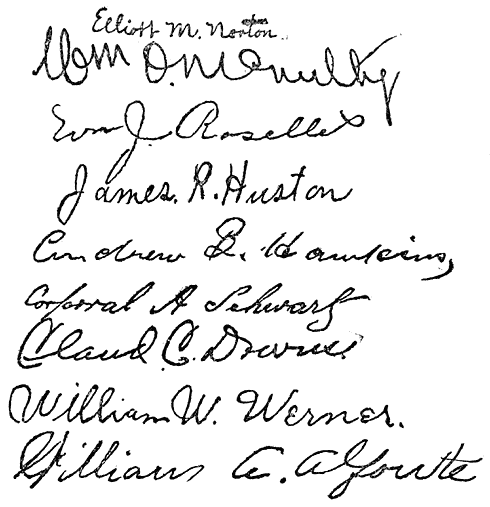 Elliott M. Norton
Wm D. McNulty
J. Roselle
James. R. Huston
Andrew B. Hawkins,
Corporal A Schwarz
Claud. C. Downes
William W. Werner.
William A.